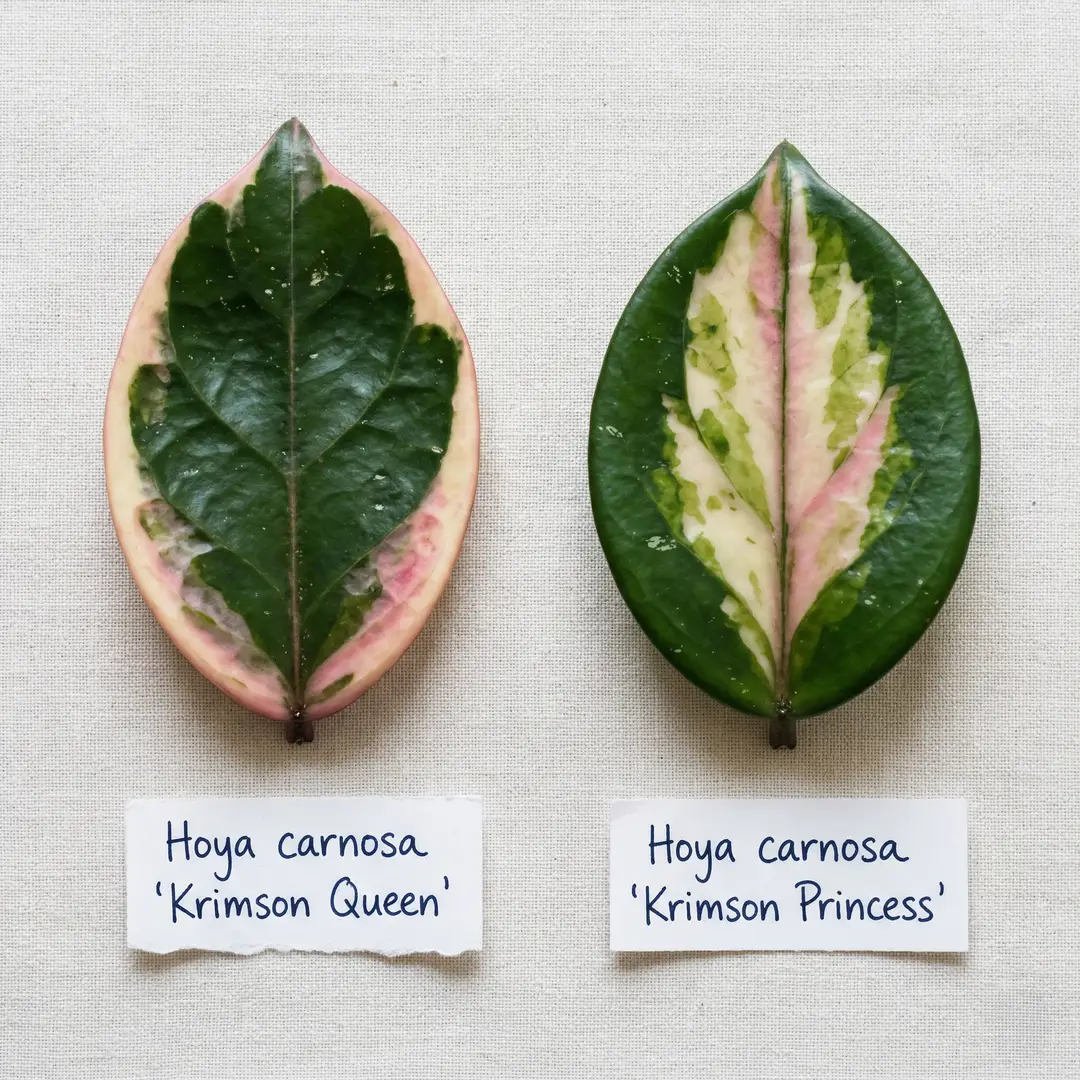 Hoya carnosa
'Krimson Queen'
Hoya carnosa
'Krimson Princess'